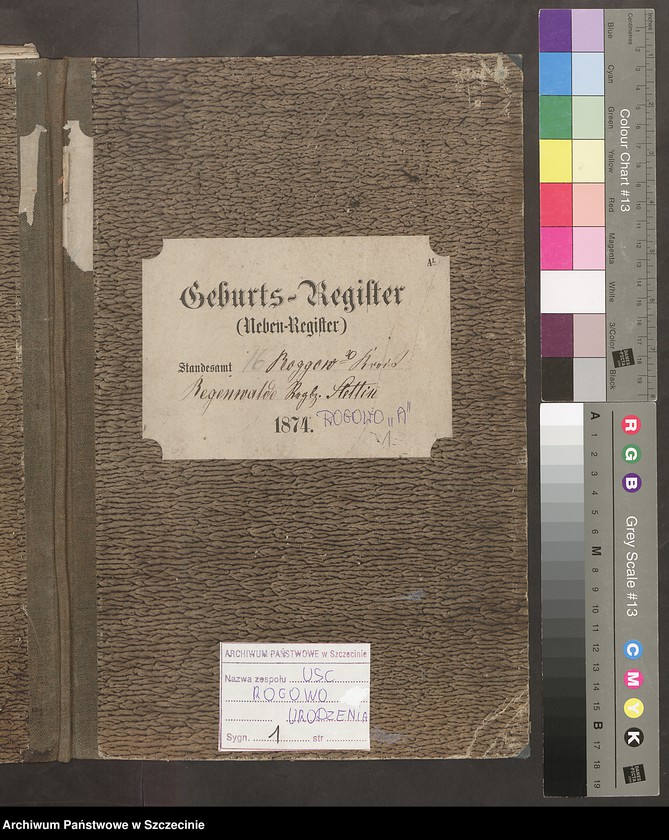 A1.
Geburts-Register
(Neben-Register)
Standesamt 16 Roggow Kreis
Regenwalde Regbz. Stettin
1874. ROGOWO "A"
1
ARCHIWUM PAŃSTWOWE w Szczecinie
Nazwa zespołu USC
ROGOWO
URODZENIA
Sygn. 1 str
Colour Chart #13
Blue
Cyan
Green
Yellow
Red
Magenta
White
3/Color
Black
Centimetres
Inches
Grey Scale #13
R
G
B
C
M
Y
K
A
1
2
3
4
5
6
M
8
9
10
11
12
13
14
15
B
17
18
19
Archiwum Państwowe w Szczecinie